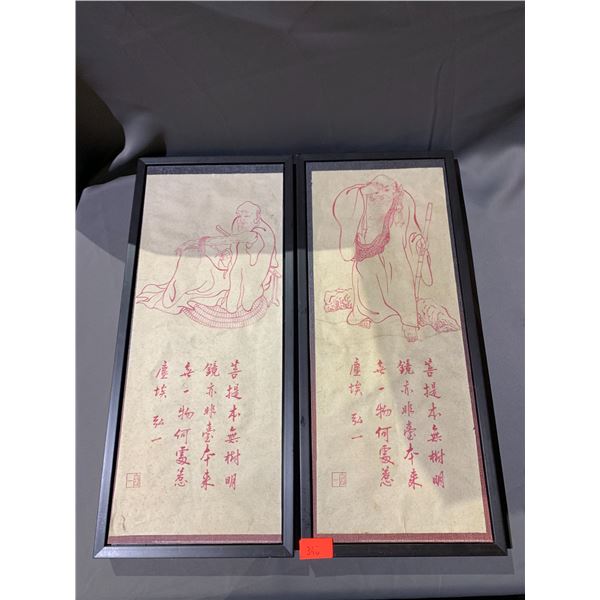 菩提本無樹明
鏡亦非臺本来
無一物何處惹
塵埃 弘一
菩提本無樹明
鏡亦非臺本来
無一物何處惹
塵埃 弘一